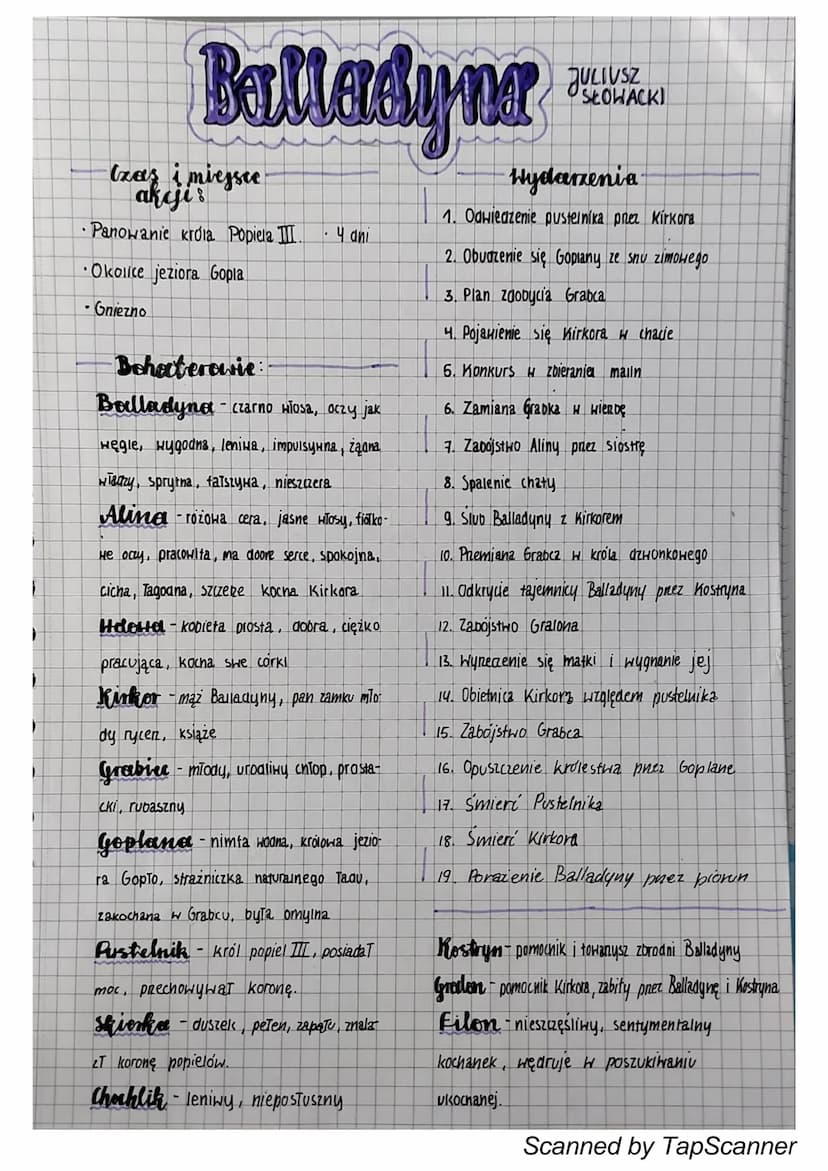 Balladyna
JULIUSZ
SŁOWACKI
Czas i miejsce
akcji:
• Panowanie króla Popiela III. • 4 dni
• Okolice jeziora Gopła
• Gniezno
Bohaterowie:
Balladyna - czarno włosa, oczy jak
węgle, wygodna, leniwa, impulsywna, żądna
władzy, sprytna, fałszywa, nieszczera
Alina - różowa cera, jasne włosy, fiołko-
we oczy, pracowita, ma dobre serce, spokojna,
cicha, łagodna, szczerze kocha Kirkora
Wdowa - kobieta prosta, dobra, ciężko
pracująca, kocha swe córki
Kirkor - mąż Balladyny, pan zamku mło-
dy rycerz, książe
Grabiec - młody, urodliwy chłop, prosta-
cki, rubaszny
Goplana - nimfa wodna, królowa jezio-
ra Gopło, strażniczka naturalnego ładu,
zakochana w Grabcu, była omylna
Pustelnik - król popiel III, posiadał
moc, przechowywał koronę.
Skierka - duszek, pełen, zapału, znala
zł koronę popielów.
Chochlik - leniwy, nieposłuszny
Wydarzenia
1. Odwiedzenie pustelnika przez Kirkora
2. Obudzenie się Goplany ze snu zimowego
3. Plan zdobycia Grabca
4. Pojawienie się Kirkora w chacie
5. Konkurs w zbierania malin
6. Zamiana Grabka w wierzbę
7. Zabójstwo Aliny przez siostrę
8. Spalenie chaty
9. Ślub Balladyny z Kirkorem
10. Przemiana Grabca w króla dzwonkowego
11. Odkrycie tajemnicy Balladyny przez Kostryna
12. Zabójstwo Gralona
13. Wyrzeczenie się matki i wygnanie jej
14. Obietnica Kirkora względem pustelnika
15. Zabójstwo Grabca
16. Opuszczenie królestwa przez Goplane
17. Śmierć Pustelnika
18. Śmierć Kirkora
19. Porażenie Balladyny przez piorun
Kostryn - pomocnik i towarzysz zbrodni Balladyny
Gralon - pomocnik Kirkora, zabity przez Balladynę i Kostryna
Filon - nieszczęśliwy, sentymentalny
kochanek, wędruje w poszukiwaniu
ukochanej.
Scanned by TapScanner